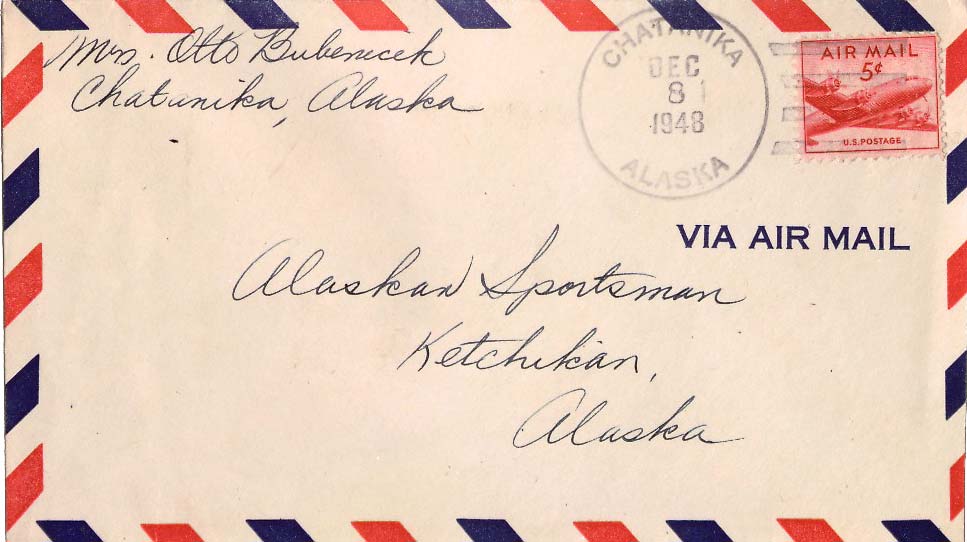 Mrs. Otto Bubenicek
Chatanika, Alaska
CHATANIKA
DEC
8
1948
ALASKA
AIR MAIL
5¢
U.S. POSTAGE
VIA AIR MAIL
Alaskan Sportsman
Ketchikan,
Alaska